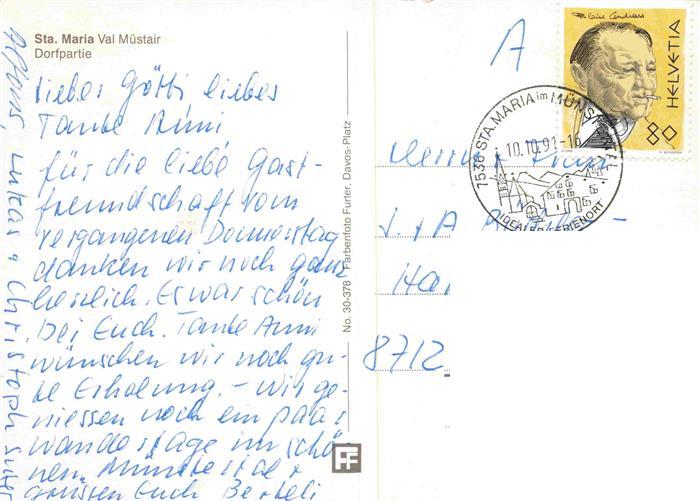 Sta. Maria Val Müstair
Dorfpartie
Lieber Götti, liebes
Tante Anni
für die liebe Gast-
freundschaft vom
vergangenen Donnerstag
danken wir noch ganz
herzlich. Es war schön
bei Euch. Tante Anni
wünschen wir noch gu-
te Erholung. – Wir ge-
niessen noch ein paar
Wandertage im schö-
nen Münstertal +
grüssen Euch Berteli
Lukas + Christoph
No. 30-378 Farbenfoto Furter, Davos-Platz
FF
A
Blaise Cendrars
HELVETIA
80
7536 STA. MARIA im MÜNSTERTAL
10.10.91-16
IDEALER FERIENORT
Herrn +
J. + A
8712